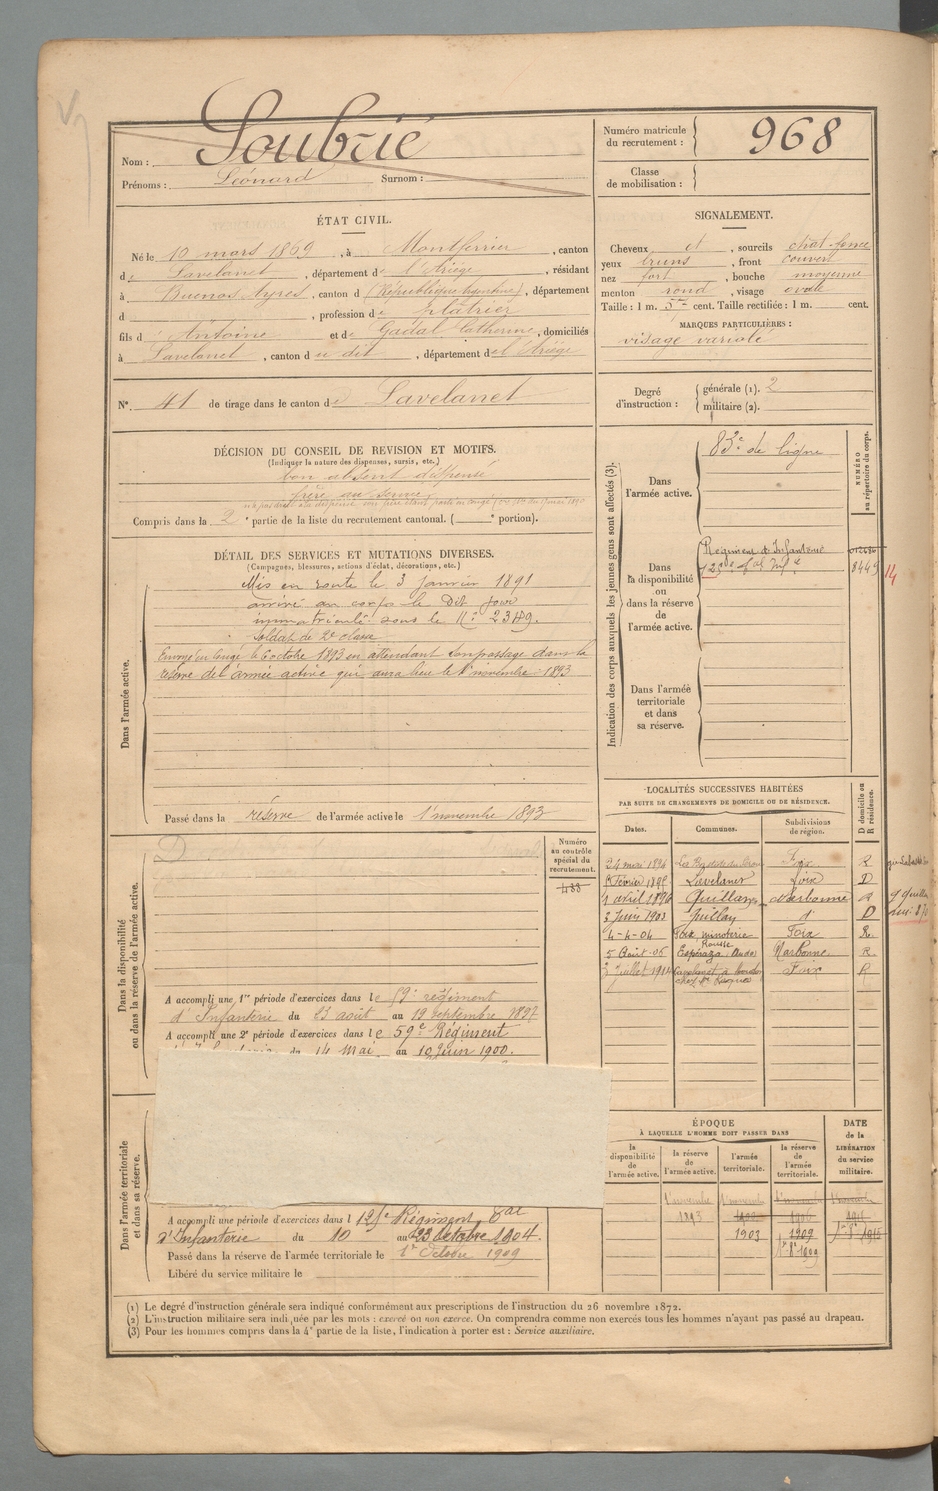 Nom : Soubrié
Prénoms : Léonard Surnom :
Numéro matricule du recrutement : 968
Classe de mobilisation :
ÉTAT CIVIL.
Né le 10 mars 1869, à Montferrier, canton
de Lavelanet, département de l'Ariège, résidant
à Buenos Ayres, canton d (République Argentine), département
d , profession de plâtrier
fils d'Antoine et de Gadal Catherine, domiciliés
à Lavelanet, canton du dit, département de l'Ariège
N° 41 de tirage dans le canton de Lavelanet
SIGNALEMENT.
Cheveux et, sourcils chat. foncé
yeux bruns, front couvert
nez fort, bouche moyenne
menton rond, visage ovale
Taille : 1 m. 5 cent. Taille rectifiée : 1 m. cent.
MARQUES PARTICULIÈRES :
visage variolé
Degré d'instruction : générale (1). 2
militaire (2).
DÉCISION DU CONSEIL DE REVISION ET MOTIFS.
(Indiquer la nature des dispenses, sursis, etc.)
bon absent dispensé
frère au service
Compris dans la 2e partie de la liste du recrutement cantonal. ( portion).
DÉTAIL DES SERVICES ET MUTATIONS DIVERSES.
(Campagnes, blessures, actions d'éclat, décorations, etc.)
Dans l'armée active.
Mis en route le 3 janvier 1891
arrivé au corps le dit jour
immatriculé sous le N° 2349.
Soldat de 2e classe
Envoyé en congé le 6 octobre 1893 en attendant son passage dans la
réserve de l'armée active qui aura lieu le 1er novembre 1893
Passé dans la réserve de l'armée active le 1er novembre 1893
Indication des corps auxquels les jeunes gens sont affectés (3).
NUMÉRO au répertoire du corps.
Dans l'armée active.
83e de ligne
Dans la disponibilité ou dans la réserve de l'armée active.
Régiment d'Infanterie
8449 14
Dans l'armée territoriale et dans sa réserve.
LOCALITÉS SUCCESSIVES HABITÉES
PAR SUITE DE CHANGEMENTS DE DOMICILE OU DE RÉSIDENCE.
Dates. Communes. Subdivisions de région. D domicile ou R résidence.
24 mai 1894 La Bastide de Sérou Foix R
Février Lavelanet Foix D
1 avril 1896 Quillan Narbonne R
3 juin 1903 Quillan d° D
4-4-04 Foix, minoterie Foix R.
5 Août 06 Espéraza Aude Narbonne R.
juillet 1914 Lavelanet Foix R
Dans la disponibilité ou dans la réserve de l'armée active.
Numéro au contrôle spécial du recrutement.
433
A accompli une 1re période d'exercices dans le régiment
d'Infanterie du 23 août au 19 septembre 1897
A accompli une 2e période d'exercices dans le 59e Régiment
du 14 Mai au 10 Juin 1900.
Dans l'armée territoriale et dans sa réserve.
A accompli une période d'exercices dans l Régiment
d'Infanterie du 10 au 23 octobre 1904.
Passé dans la réserve de l'armée territoriale le 1er Octobre 1909
Libéré du service militaire le
ÉPOQUE
À LAQUELLE L'HOMME DOIT PASSER DANS
DATE de la LIBÉRATION du service militaire.
la disponibilité de l'armée active. la réserve de l'armée active. l'armée territoriale. la réserve de l'armée territoriale.
1er novembre 1er novembre
1893
1903 1909
(1) Le degré d'instruction générale sera indiqué conformément aux prescriptions de l'instruction du 26 novembre 1872.
(2) L'instruction militaire sera indiquée par les mots : exercé ou non exercé. On comprendra comme non exercés tous les hommes n'ayant pas passé au drapeau.
(3) Pour les hommes compris dans la 4e partie de la liste, l'indication à porter est : Service auxiliaire.